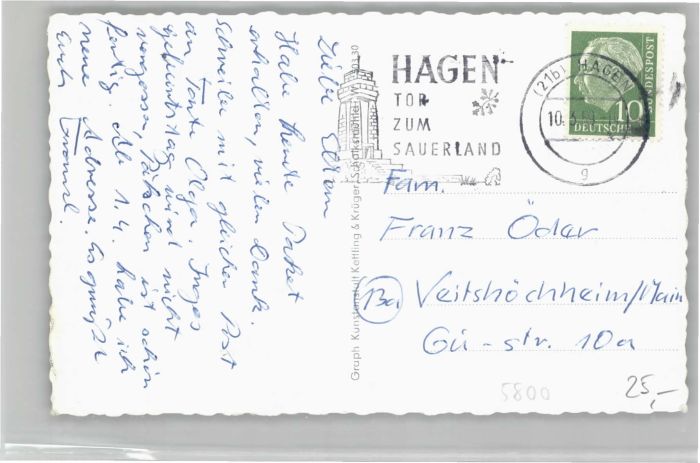 Liebe Eltern
Habe heute Paket
erhalten, vielen Dank.
Schreiben mit gleicher Post
an Tante Olga. Inges
Geburtstag wird nicht
vergessen, Päckchen ist schon
fertig. Ab 1.4. habe ich
neue Adresse. Es grüßt
Euch
Graph. Kunstanstalt Kettling & Krüger, Schalksmühle i. W.
HAGEN
TOR
ZUM
SAUERLAND
(21b) HAGEN
10.3.
g
10
DEUTSCHE
BUNDESPOST
Fam.
Franz Ödar
13a Veitshöchheim/Main
Gü-str. 10a
5800
25,-